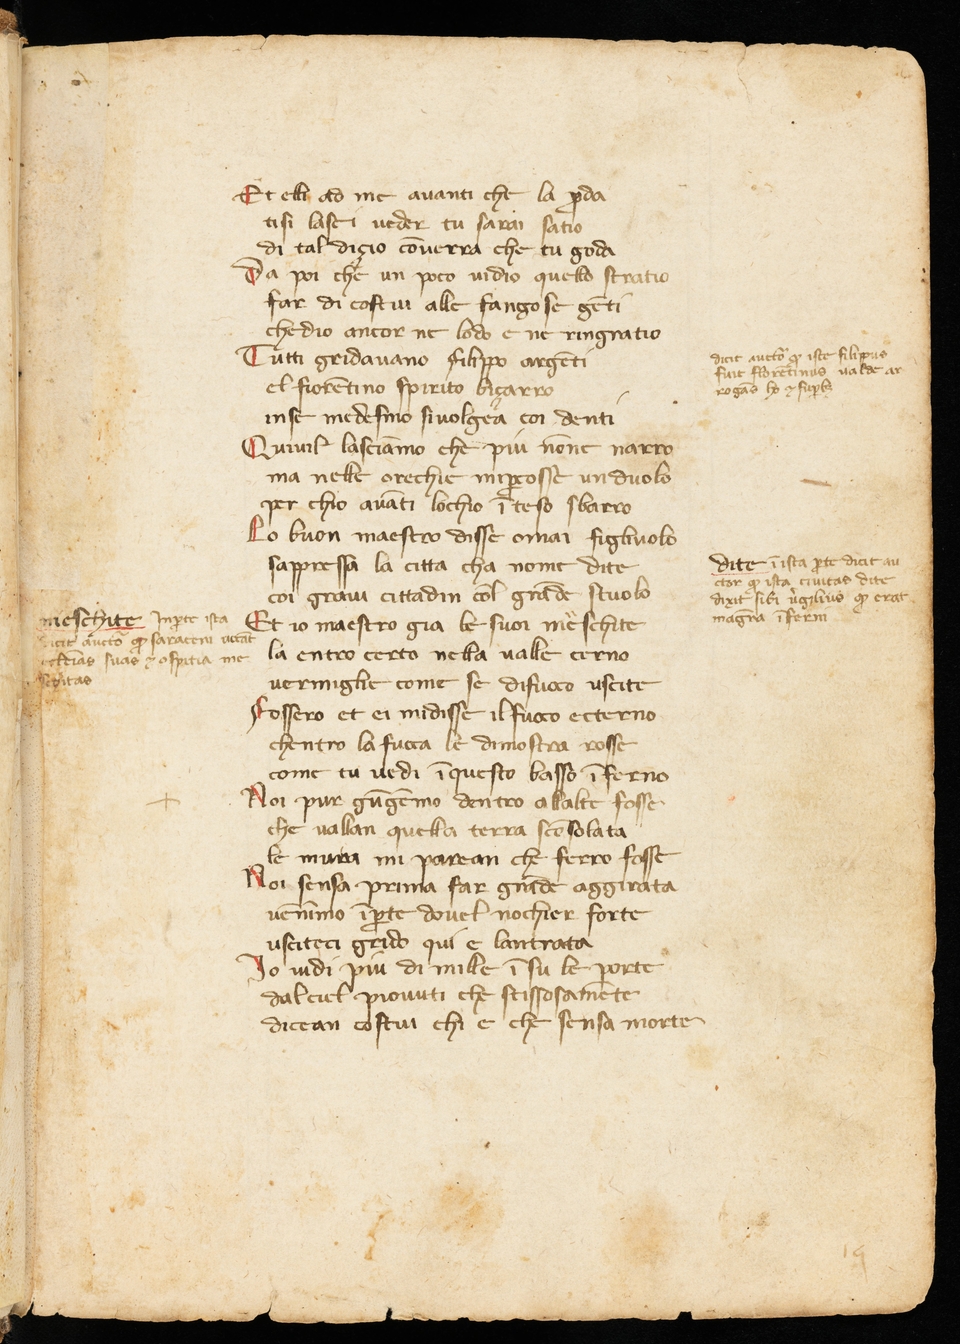 Et elli ad me auanti che la p̱da
tisi lasci ueder tu sarai satio
di tal diçio cōuerra che tu goda
Da poi che un poco uidio quello stratio
far di costui alle fangose gēti
che dio ancor ne lodo e ne ringratio
Tutti gridauano filippo argēti
el fiorētino spirito biçarro
inse medesmo siuolgea coi denti
Quiuil lasciāmo che piu nōne narro
ma nelle orechie mip̱cosse unduolo
per chio auāti lochio ī teso sbarro
Lo buon maestro disse omai figliuolo
sappressa la citta cha nome dite
coi graui cittadin col grāde stuolo
Et io maestro gia le suoi meschite
la entro certo nella ualle cerno
uermiglie come se difuoco uscite
Fossero et ei midisse il fuoco ecterno
chentro la fuoca le dimostra rosse
come tu uedi ī questo basso īferno
Noi pur giūgēmo dentro allalte fosse
che uallan quella terra scōsolata
le mura mi parean che ferro fosse
Noi sensa prima far grāde aggirata
uenīmo īp̱te douel nochier forte
usciteci grido qui e lantrata
Io uidi piu di mille ī su le porte
dal ciel piouuti che stissosamēte
dicean costui chi e che sensa morte
dicit auctor̄ ꝙ iste filipus
fuit florētinus ualde ar
rogās hō ⁊ sup̱b
dite ī ista p̱te dicit au
ctor ꝙ ista ciuitas dite
dixit sibi u̇gilius ꝙ erat
magr̄a īferni
meschite Inp̱te ista
dicit auctor̄ ꝙ saraceni uocāt
eclesias suas ⁊ ospitia me
schitas
19